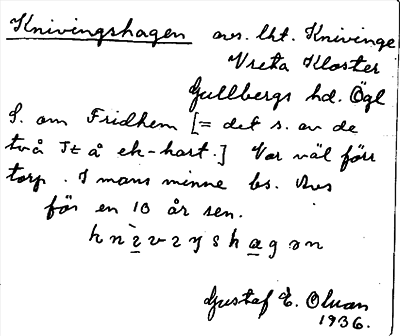 Knivingshagen avs. lht. Knivinge
Vreta Kloster
Gullbergs hd. Ögl
S. om Fridhem [= det s. av de
två Tt å ek-kart.] Var väl förr
torp. I mans minne bs. Avs
för en 10 år sen.
Gustaf E. Olvan
1936.